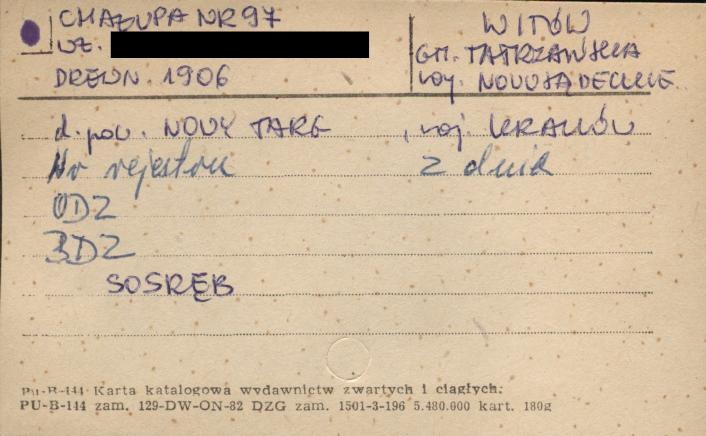 CHAŁUPA NR 97
WŁ.
DREWN. 1906
WITÓW
GM. TATRZAŃSKA
WOJ. NOWOSĄDECKIE
d. pow. NOWY TARG , woj. KRAKÓW
Nr rejestru z dnia
ODZ
BDZ
SOSRĘB
PU-B-144 Karta katalogowa wydawnictw zwartych i ciągłych.
PU-B-144 zam. 129-DW-ON-82 DZG zam. 1501-3-196 5.480.000 kart. 180g